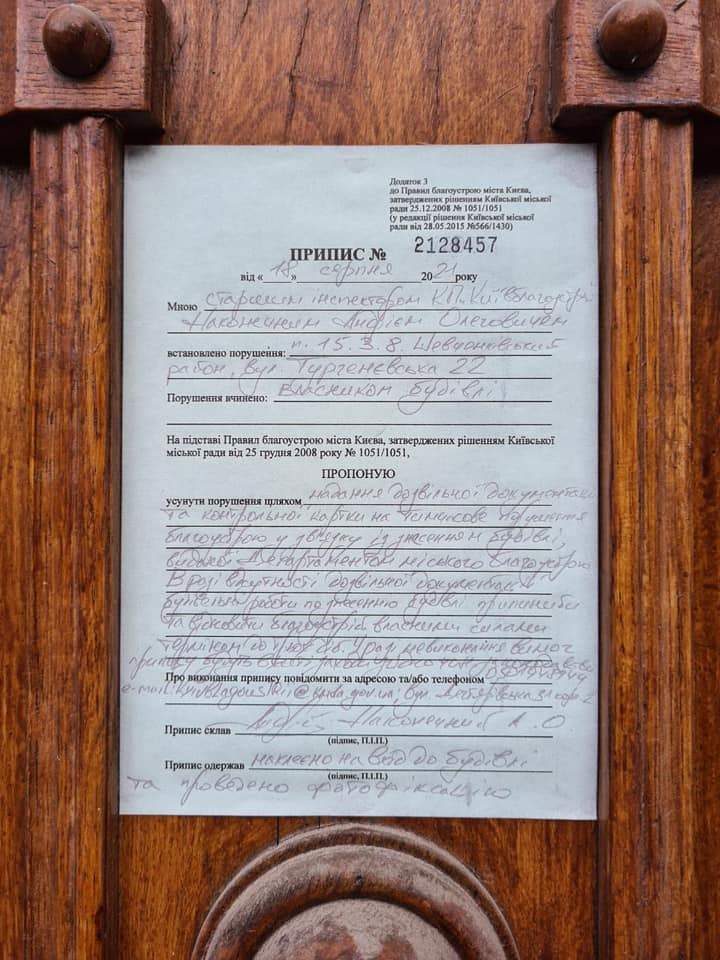 Додаток 3
до Правил благоустрою міста Києва,
затверджених рішенням Київської міської
ради 25.12.2008 № 1051/1051
(у редакції рішення Київської міської
ради від 28.05.2015 №566/1430)
ПРИПИС № 2128457
від « 18 » серпня 2021 року
Мною старшим інспектором КП "Київблагоустрій
Наконечним Андрієм Олеговичем
встановлено порушення: п. 15.3.8. Шевченківський
район, вул. Тургенєвська 22
Порушення вчинено: Власником будівлі
На підставі Правил благоустрою міста Києва, затверджених рішенням Київської
міської ради від 25 грудня 2008 року № 1051/1051,
ПРОПОНУЮ
усунути порушення шляхом надання дозвільної документації
та контрольної картки на тимчасове порушення
благоустрою у зв'язку із знесенням будівлі,
виданої Департаментом міського благоустрою
В разі відсутності дозвільної документації
будівельні роботи по знесенню будівлі припинити
та відновити благоустрій власними силами
терміном до доби. В разі невиконання вимог
припису будуть вжиті заходи згідно чинного законодавства
Про виконання припису повідомити за адресою та/або телефоном
e-mail: kyivblagoustrii@kmda.gov.ua; вул. Дегтярівська 31 корп 2
Припис склав Наконечний А.О
(підпис, П.І.П.)
Припис одержав наклеєно на вхід до будівлі
(підпис, П.І.П.)
та проведено фотофіксацію